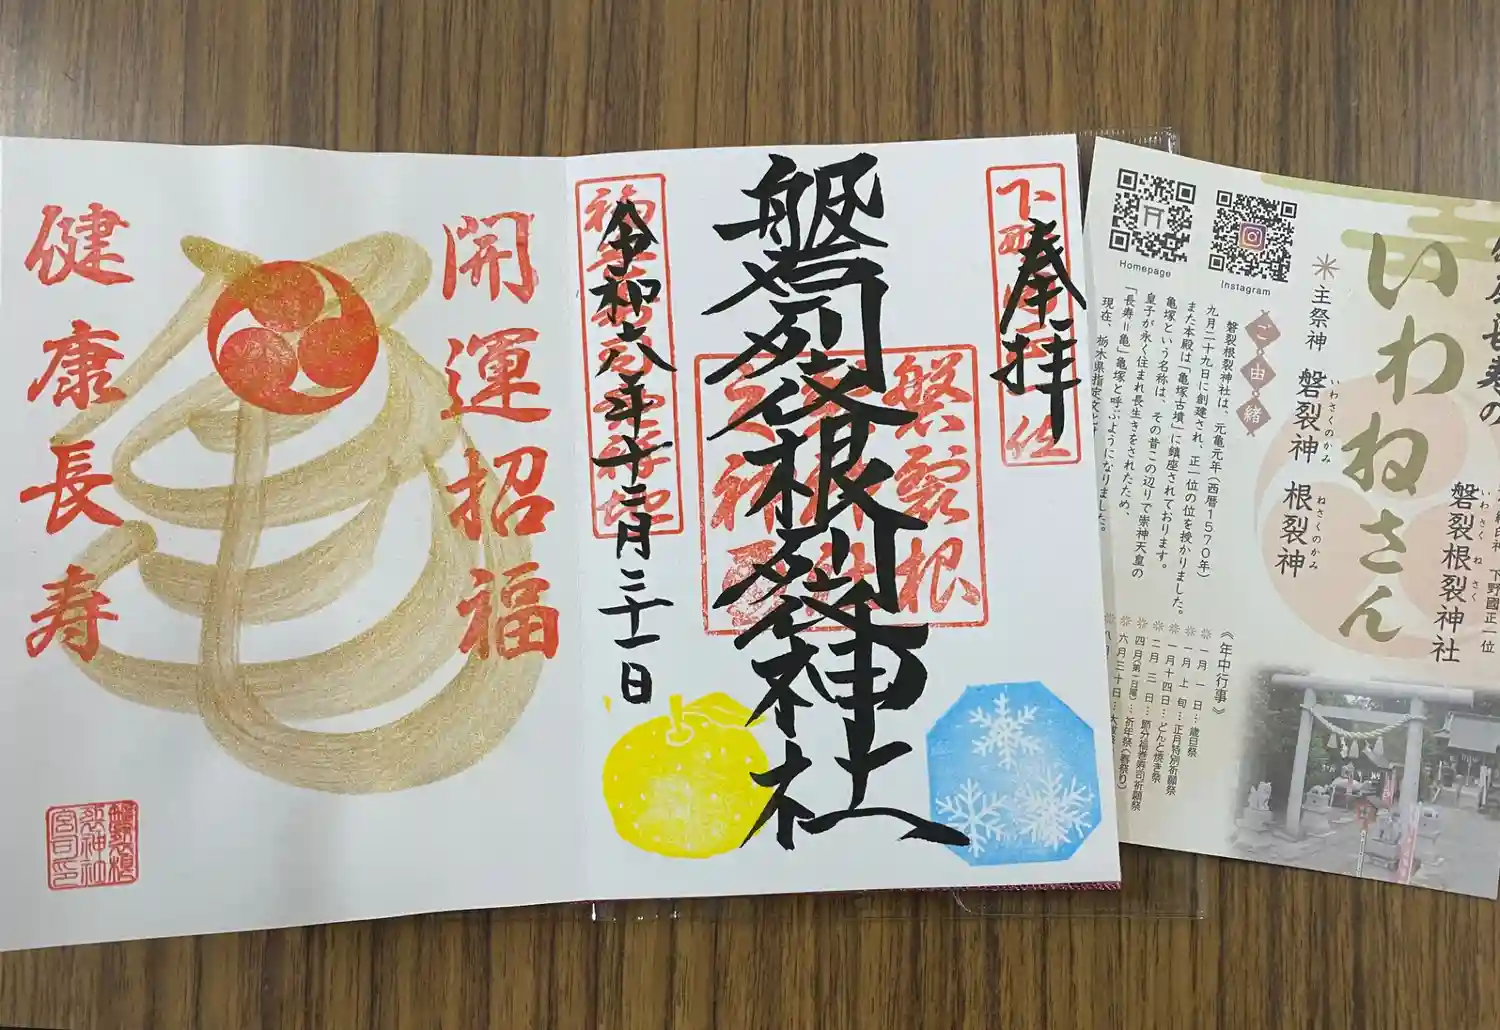 開運招福
健康長寿
奉拝
磐裂根裂神社
令和六年十二月三十一日
磐裂根
Homepage
Instagram
いわねさん
主祭神 磐裂神 根裂神
いわさくのかみ
ねさくのかみ
磐裂根裂神社
いわさく ねさく
下野國正一位
ご・由・緒
磐裂根裂神社は、元亀元年(西暦1570年)
九月二十九日に創建され、正一位の位を授かりました。
また本殿は「亀塚古墳」に鎮座されております。
亀塚という名称は、その昔この辺りで崇神天皇の
皇子が永く住まれ長生きをされたため、
「長寿=亀」亀塚と呼ぶようになりました。
現在、栃木県指定文化
《年中行事》
一月一日…歳旦祭
一月上旬…正月特別祈願祭
一月十四日…どんと焼き祭
二月三日…節分福巻寿司祈願祭
四月(第一日曜)…祈年祭(春祭り)
六月三十日…大祓